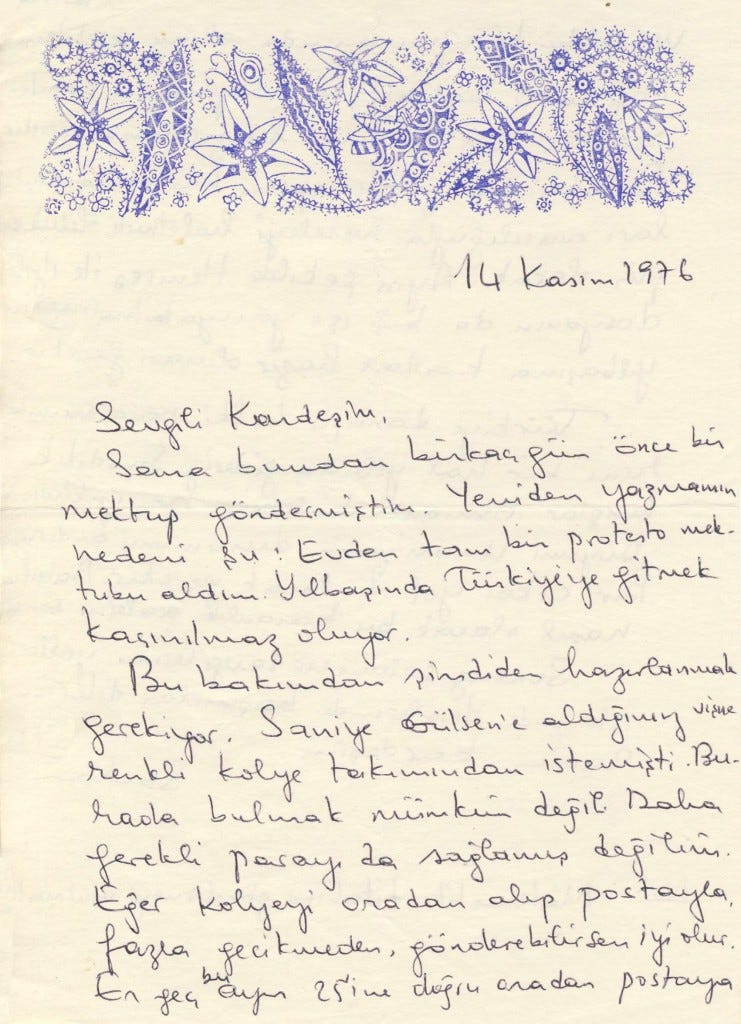 14 Kasım 1976
Sevgili Kardeşim,
Sana bundan birkaç gün önce bir
mektup göndermiştim. Yeniden yazmamın
nedeni şu: Evden tam bir protesto mek-
tubu aldım. Yılbaşında Türkiye'ye gitmek
kaçınılmaz oluyor.
Bu bakımdan şimdiden hazırlanmak
gerekiyor. Saniye Gülsen'e aldığımız vişne
renkli kolye takımından istemişti. Bu-
rada bulmak mümkün değil. Daha
gerekli parayı da sağlamış değilim.
Eğer kolyeyi oradan alıp postayla,
fazla gecikmeden, gönderebilirsen iyi olur.
En geç bu ayın 25'ine doğru oradan postaya